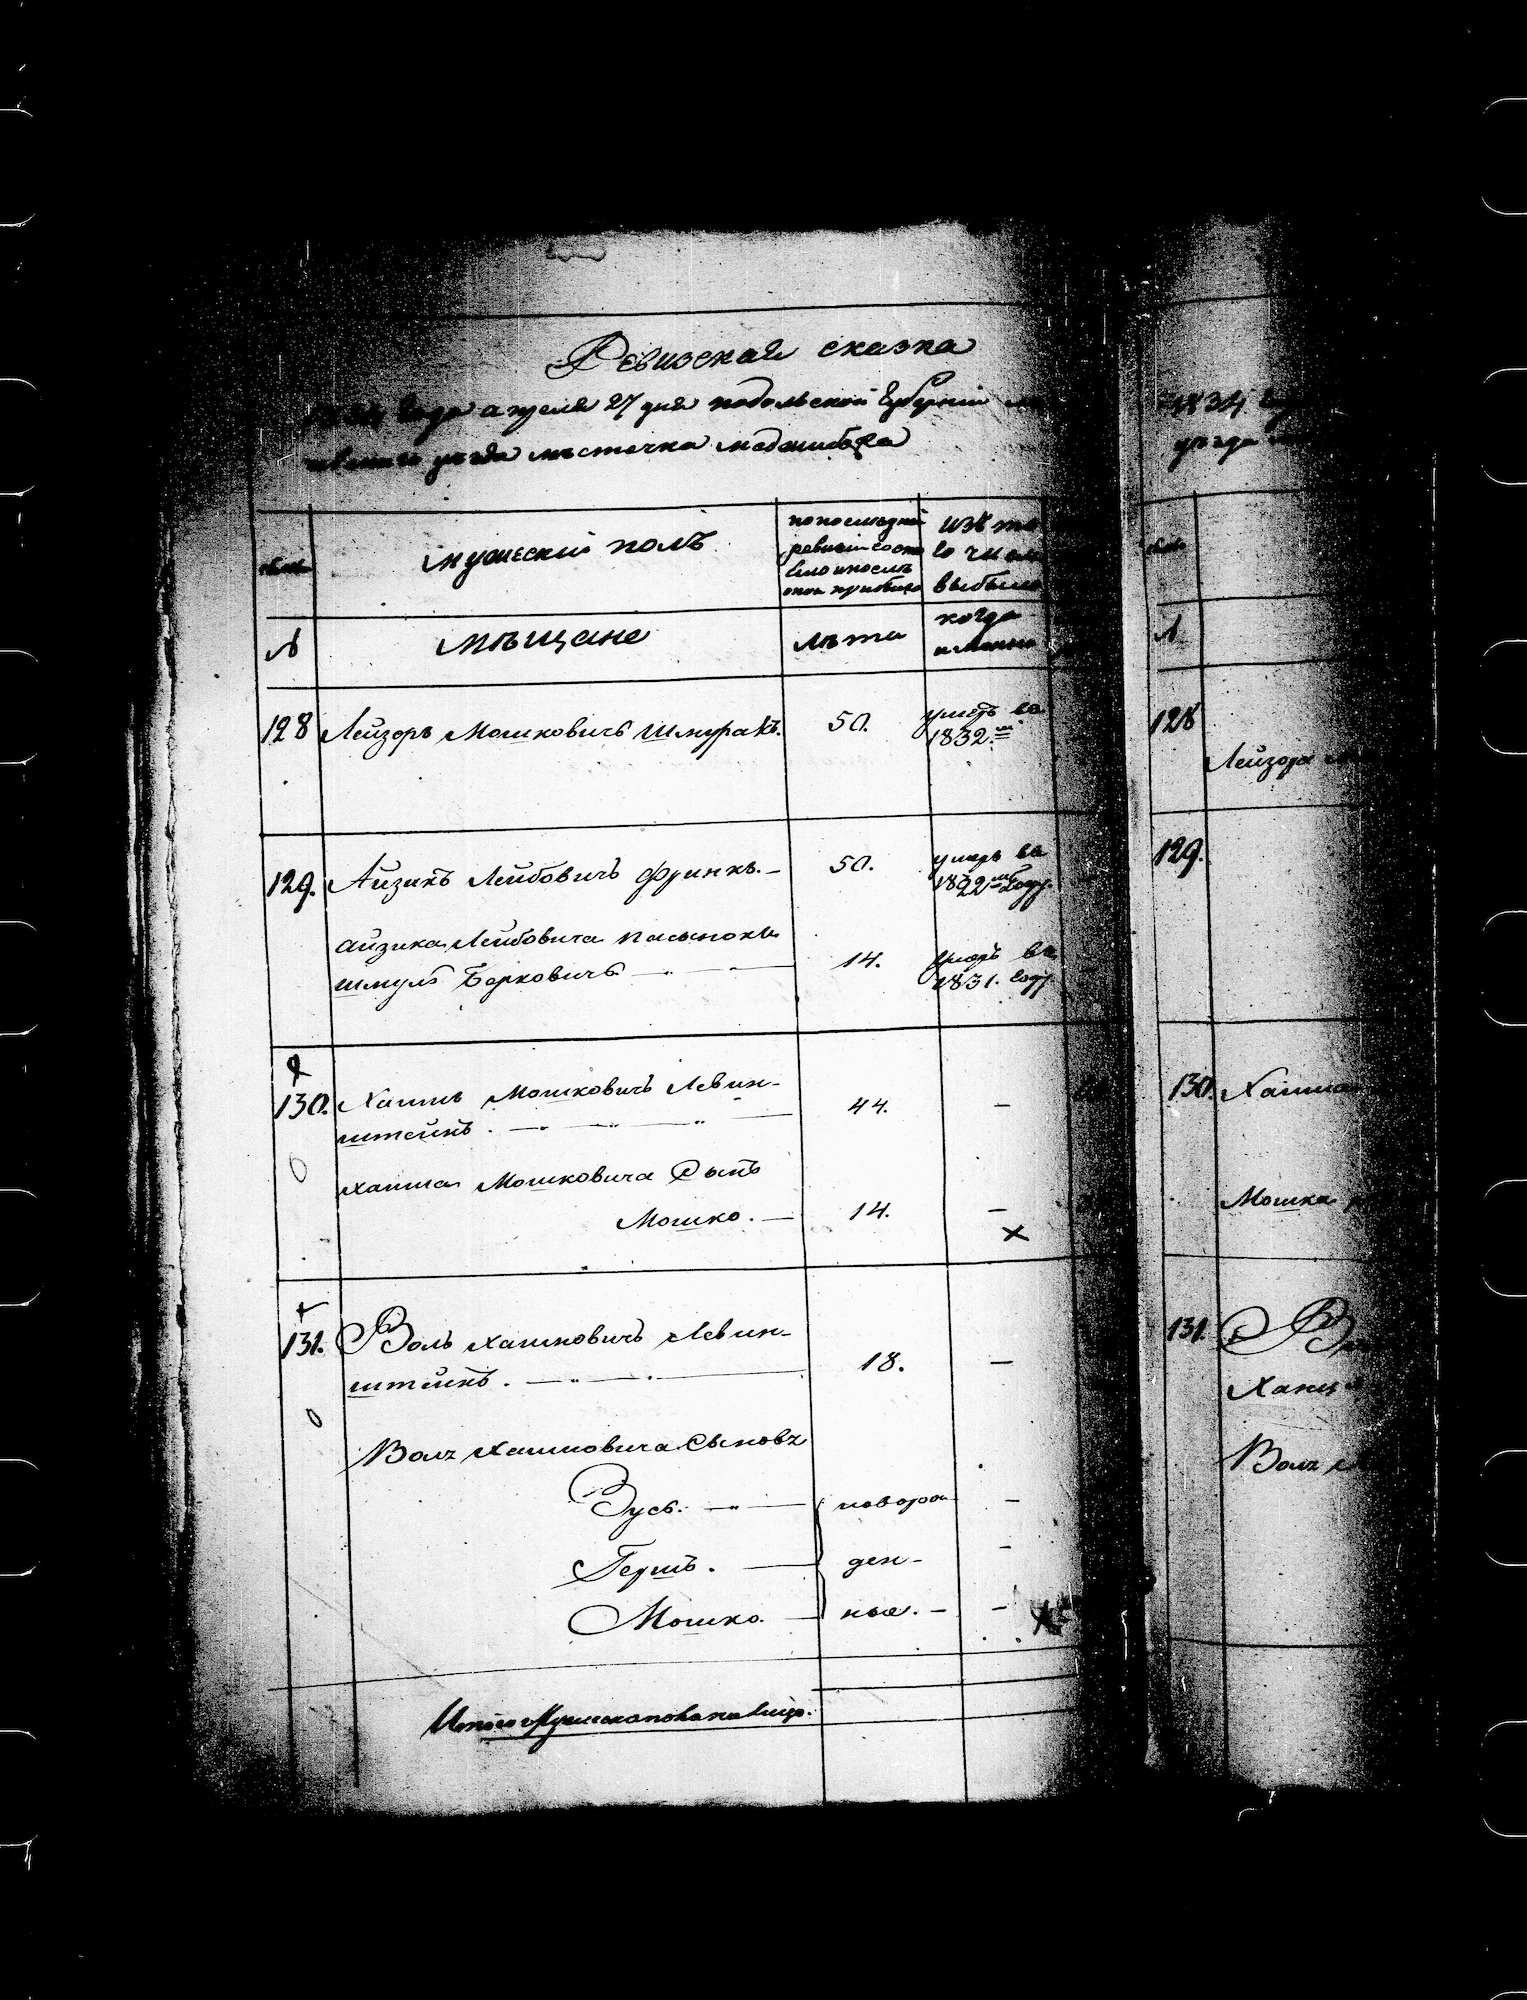 Ревизская сказка
года апреля 27 дня подольской Губернии
уезда местечка меджибожа
мужеский полъ
по последней
ревизии состо
яло и после
оной прибыло
изъ то
го числа
выбыло
№
мѣщане
лѣта
когда
именно
128 Лейзоръ Мошковичъ Шмуракъ. 50. умеръ въ
1832.
129. Айзикъ Лейбовичъ Фринкъ. 50. умеръ въ
1822 году.
Айзика Лейбовича пасынокъ
Шмуль Берковичъ 14. умеръ въ
1831. году
130. Хаимъ Мошковичъ Левин-
штейнъ. 44. —
Хаима Мошковича Сынъ
Мошко. — 14. —
×
131. Воль Хаимковичъ Левин-
штейнъ. 18. —
Воля Хаимковича Сыновя
Зусь. новоро- —
Гершъ. ден- —
Мошко. — ные. — —
Итого Мужеска пола на лицо.
1834
уезда
№
128
Лейзора
129.
130. Хаима
Мошка
131. Во
Хаим
Воля